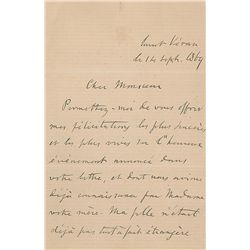 Saint Véran
le 14 Sept. 1869
Cher Monsieur
Permettez-moi de vous offrir
mes félicitations les plus sincères
et les plus vives sur l'heureux
événement annoncé dans
votre lettre, et dont nous avions
déjà connaissance par Madame
votre mère. Ma fille n'était
déjà pas tout à fait étrangère